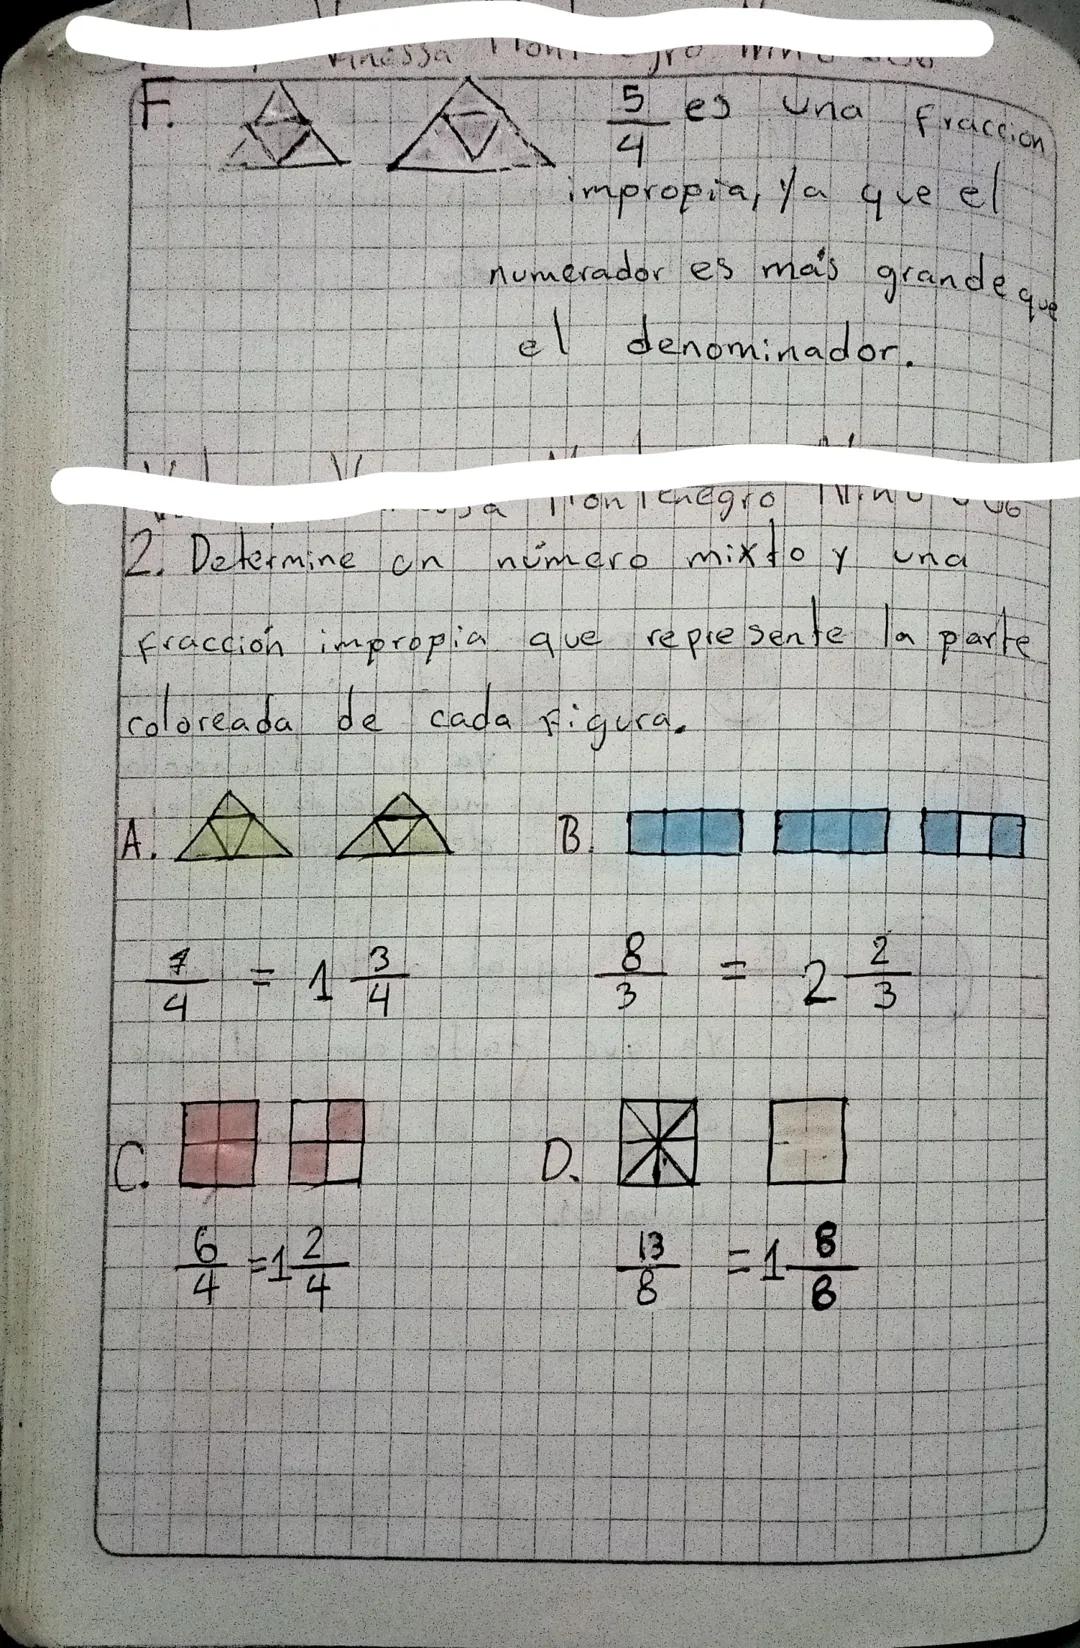 F. 5/4 es una fraccion
impropia, ya que el
numerador es más grande que
el denominador.
2. Determine un número mixto y una
fracción impropia que represente la parte
coloreada de cada figura.
A. B.
7/4 = 1 3/4 8/3 = 2 2/3
C. D.
6/4 = 1 2/4 13/8 = 1 8/8